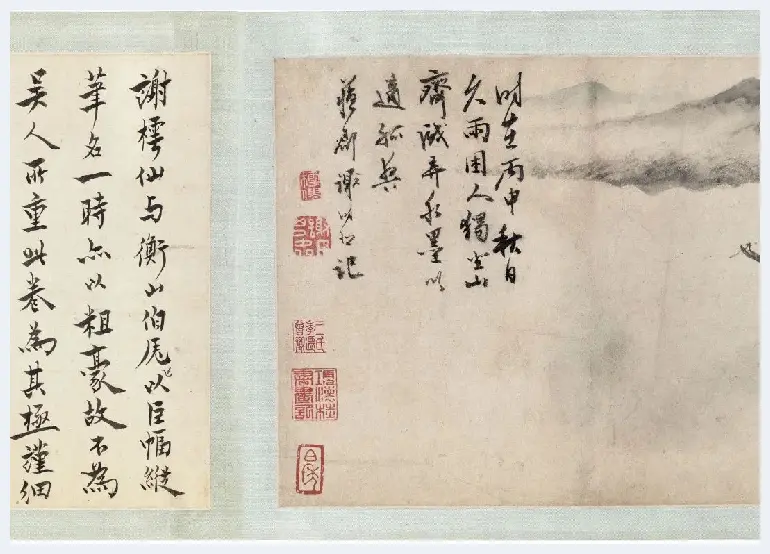 时在丙申秋日
久雨困人獨坐山
齋戲弄水墨以
適孤興
謝時臣記
謝樗仙与衡山伯虎以巨幅縱
筆名一時亦以粗豪故不為
吳人所重此卷為其極謹細